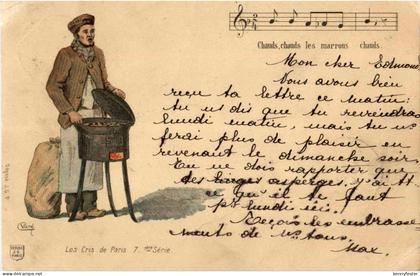 Chauds, chauds les marrons chauds.
Mon cher Edmond
Vous avons bien
reçu ta lettre ce matin.
tu us dis que tu reviendras
lundi matin, mais tu us
ferai plus de plaisir en
revenant le dimanche soir.
Tu ne dois rapporter que
des asperges, y a-t-il
ce qu'il te faut
pr lundi
Reçois les embrasse
ments de ns tous,
Max.
Les Cris de Paris 7. Série.